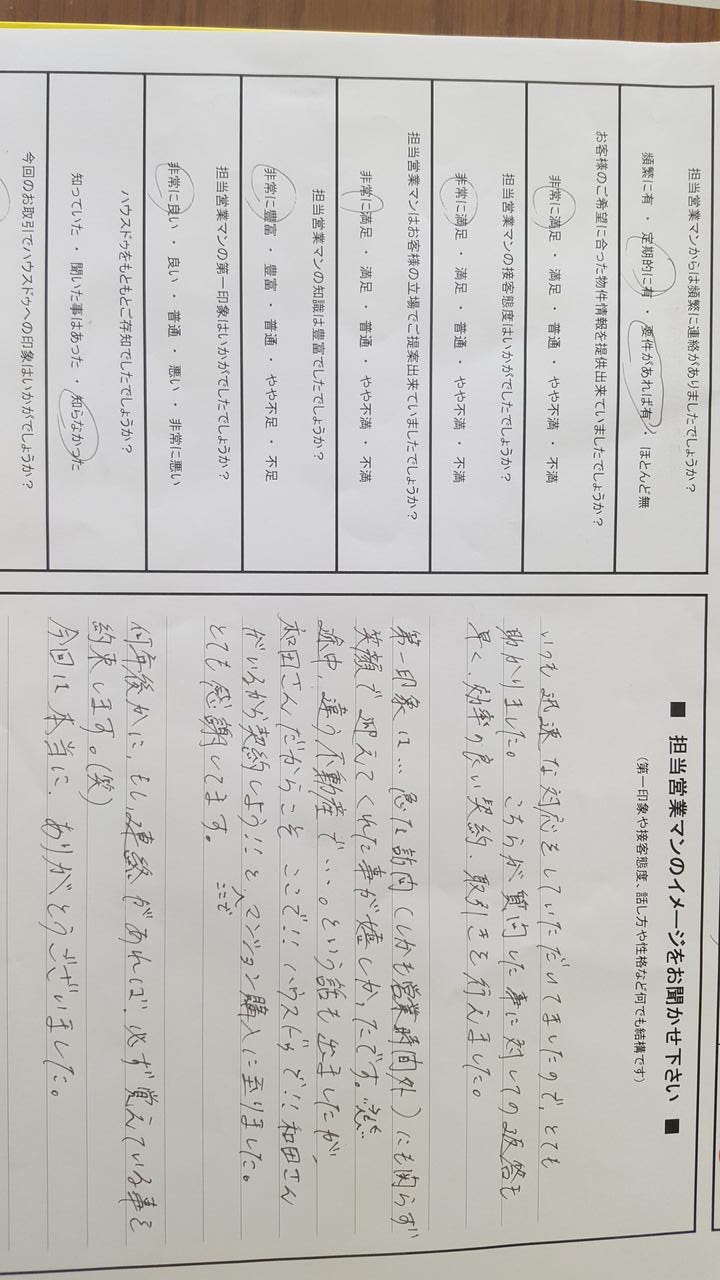 担当営業マンからは頻繁に連絡がありましたでしょうか？
頻繁に有 ・ 定期的に有 ・ 要件があれば有 ・ ほとんど無
お客様のご希望に合った物件情報を提供出来ていましたでしょうか？
非常に満足 ・ 満足 ・ 普通 ・ やや不満 ・ 不満
担当営業マンの接客態度はいかがでしたでしょうか？
非常に満足 ・ 満足 ・ 普通 ・ やや不満 ・ 不満
担当営業マンはお客様の立場でご提案出来ていましたでしょうか？
非常に満足 ・ 満足 ・ 普通 ・ やや不満 ・ 不満
担当営業マンの知識は豊富でしたでしょうか？
非常に豊富 ・ 豊富 ・ 普通 ・ やや不足 ・ 不足
担当営業マンの第一印象はいかがでしたでしょうか？
非常に良い ・ 良い ・ 普通 ・ 悪い ・ 非常に悪い
ハウスドゥをもともとご存知でしたでしょうか？
知っていた ・ 聞いた事はあった ・ 知らなかった
今回のお取引でハウスドゥへの印象はいかがでしょうか？
■ 担当営業マンのイメージをお聞かせ下さい ■
（第一印象や接客態度、話し方や性格など何でも結構です）
いつも迅速な対応をしていただいてましたので、とても
助かりました。こちらが質問した事に対しての返答も
早く、効率の良い契約、取引きを行えました。
第一印象は…急な訪問（しかも営業時間外）にも関らず
笑顔で迎えてくれた事が嬉しかったです。
途中、違う不動産で…。という話も出ましたが、
和田さんだからこそ ここで!! ハウスドゥで!! 和田さん
がいるから契約しよう!!と、ここでマンション購入に至りました。
とても感謝してます。
何年後かに、もし連絡があれば、必ず覚えている事を
約束します。(笑)
今回は本当に、ありがとうございました。